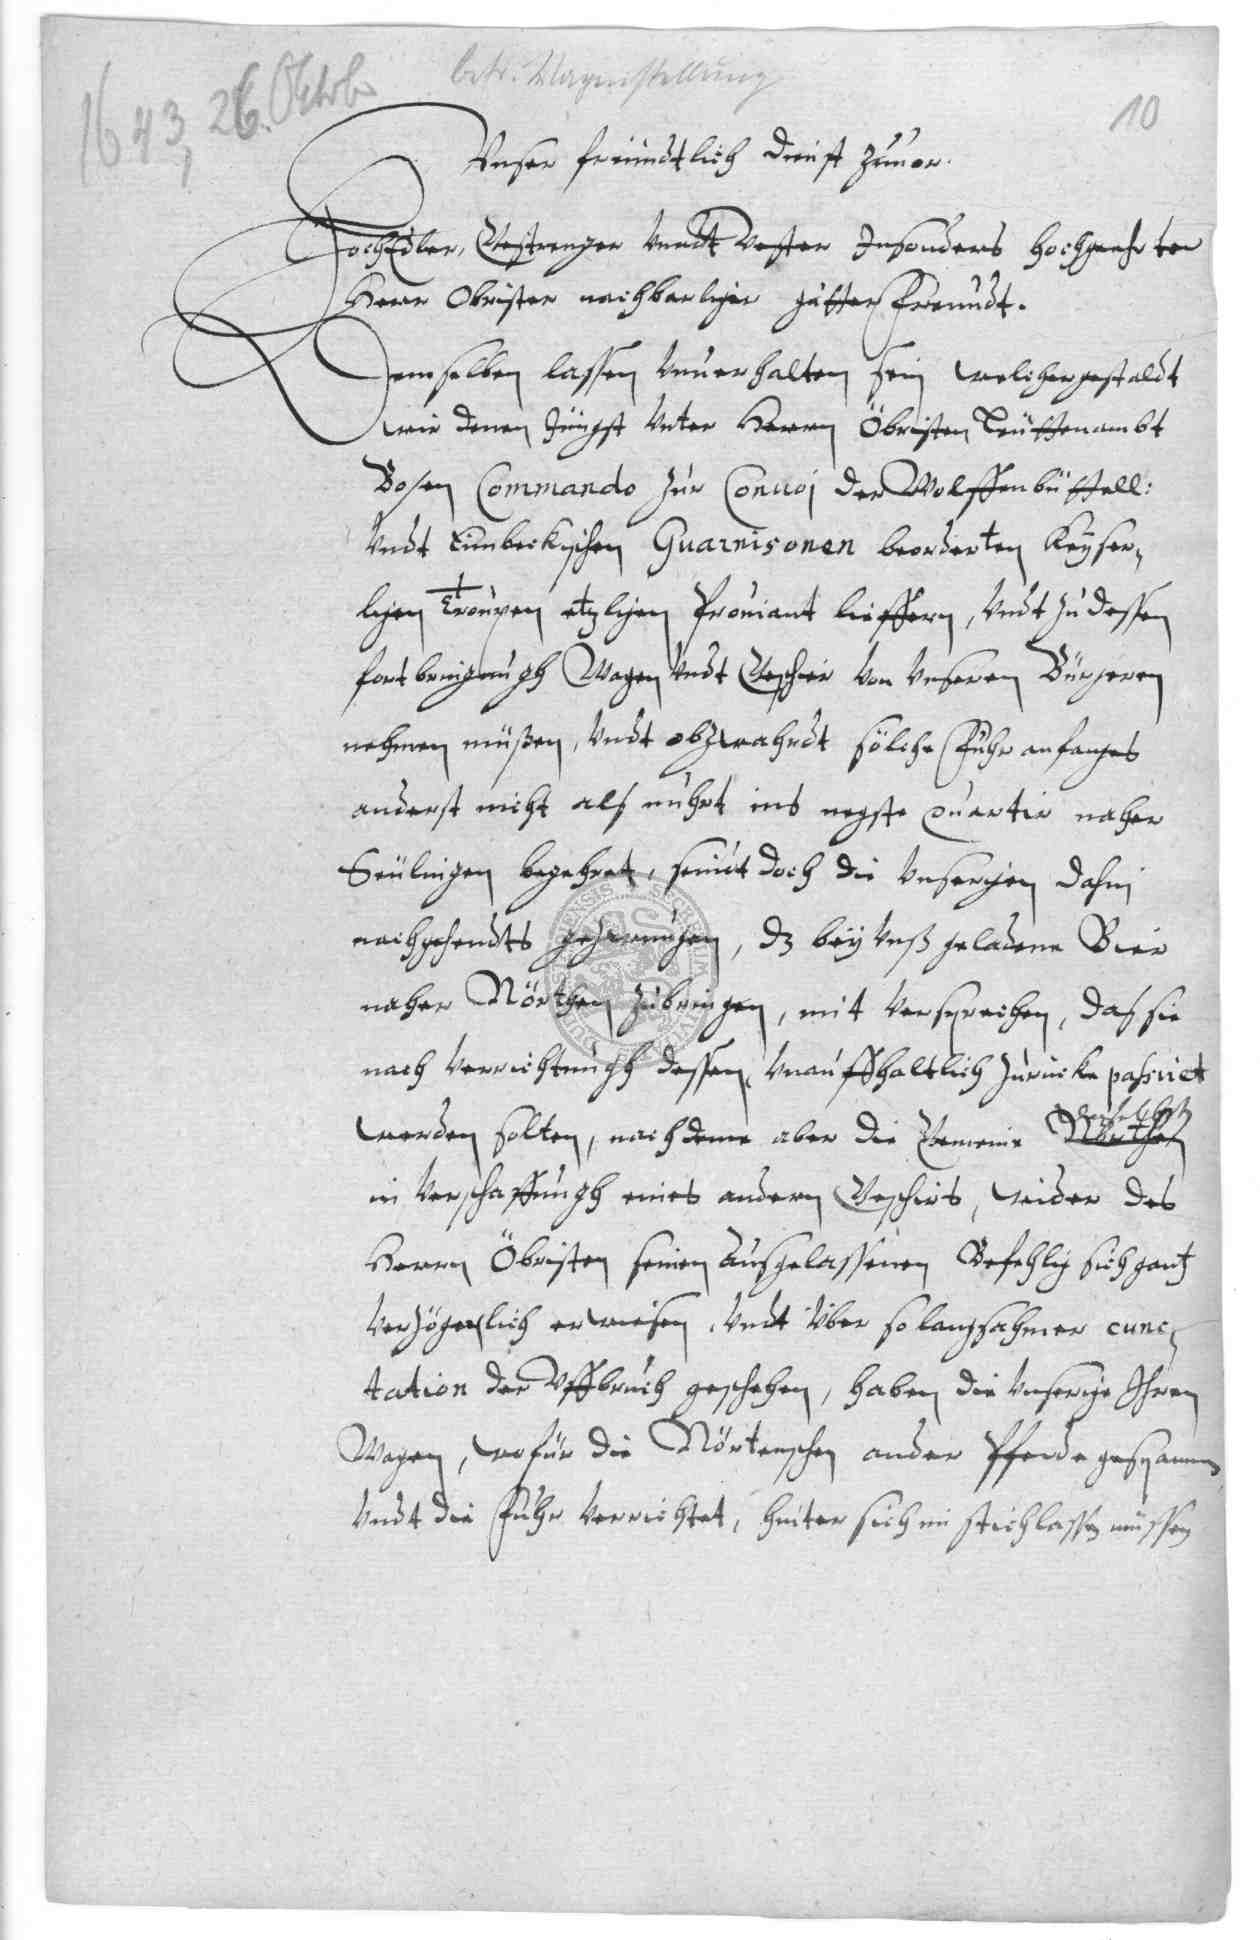 betr. Wagenstellung
1643, 26. Oktob
10
Unser freundtlich dienst zuuor.
HochEdler, Gestrenger Undt Vester Insonders hochgeehrter
Herr Obrister nachbarlicher gutter Freundt.
Demselben lassen Unuerhalten sein welchergestaldt
wir denen Jüngst Unter Herrn Öbristen Leuttenambt
Bosen Commando zur Conuoj der Wolffenbüttell:
Undt Eimbeckischen Guarnisonen beorderten Keyser,
lichen Troupen etzlichen Prouiant lieffern, Undt zu dessen
fortbringungh Wagen Undt Geschir Von Unseren Bürgeren
nehmen müßen, Undt obzwahrdt solche Fuhr anfanges
anderst nicht alß nuhrt ins negste quartir naher
Seulingen begehret, seindt doch die Unserigen dahin
nachgehendts gezwungen, dz bey Unß geladene Bier
naher Nörthen zubringen, mit Versprechen, daß sie
nach Verrichtungh dessen, Unauffhaltlich zurücke passiret
werden solten, nachdeme aber die Gemeine Nörthen
daselbst
in Verschaffungh eines andern Geschirs, wider des
Herrn Öbristen seinen außgelassenen Befehlig sich gantz
Verzögerlich erwiesen, Undt Über so langsahmer cunc,
tation der Uffbruch geschehen, haben die Unserige Ihren
Wagen, wofür die Nörtenschen ander Pferde gespannen
Undt die Fuhr Verrichtet, hinter sich im stich lassen müssen